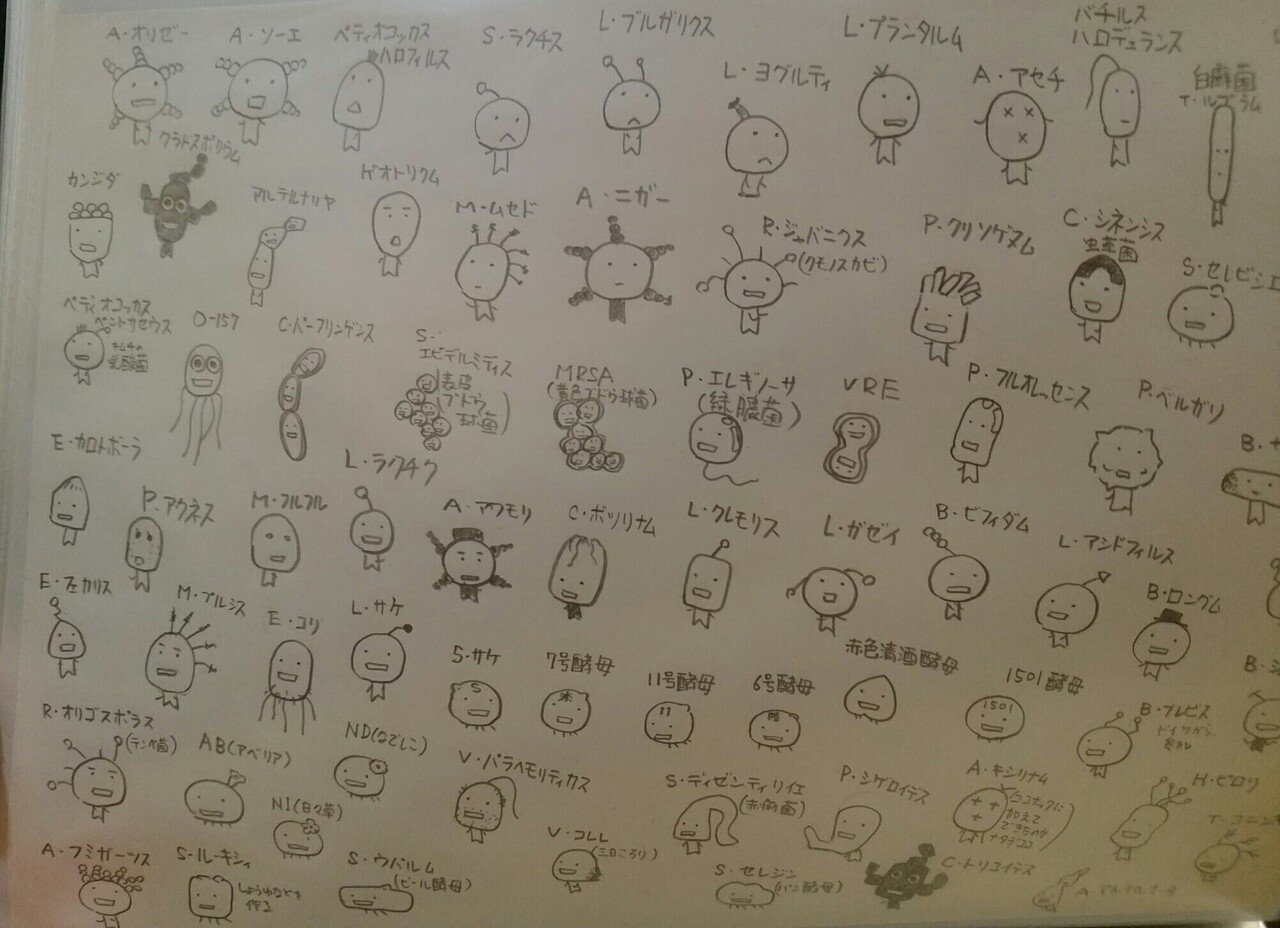 A・オリゼー
A・ソーエ
ペディオコッカス
ハロフィルス
S・ラクチス
L・ブルガリクス
L・ヨグルティ
L・プランタルム
A・アセチ
バチルス
ハロデュランス
白癬菌
T・ルブラム
カンジダ
クラドスポリウム
アルテルナリヤ
ゲオトリクム
M・ムセド
A・ニガー
R・ジャバニクス
(クモノスカビ)
P・クリソゲヌム
C・シネンシス
虫草菌
S・セレビシエ
ペディオコッカス
ペントサセウス
キムチの
乳酸菌
O-157
C・パーフリンゲンス
S・
エピデルミディス
(表皮
ブドウ
球菌)
MRSA
(黄色ブドウ球菌)
P・エレギノーサ
(緑膿菌)
VRE
P・フルオレッセンス
P・ベルガリ
E・カロトボーラ
P・アクネス
M・フルフル
L・ラクチク
A・アワモリ
C・ボツリナム
L・クレモリス
L・ガゼイ
B・ビフィダム
L・アシドフィルス
B・ロングム
E・フェカリス
M・プルシス
E・コリ
L・サケ
S・サケ
7号酵母
11号酵母
11
6号酵母
赤色清酒酵母
1501酵母
1501
B・ブレビス
R・オリゴスポラス
(テンペ菌)
AB(アベリア)
ND(なでしこ)
NI(日々草)
V・パラヘモリティカス
V・コレレ
(三日ころり)
S・ディゼンティリイエ
(赤痢菌)
P・シゲロイデス
A・キシリナム
(ココナッツに
加えて
できたのが
ナタデココ)
H・ピロリ
A・フミガーツス
S・ルーキシィ
しょうゆなどを
作る
S・ウバルム
(ビール酵母)
S・セレジン
(パン酵母)
C・トリコイデス